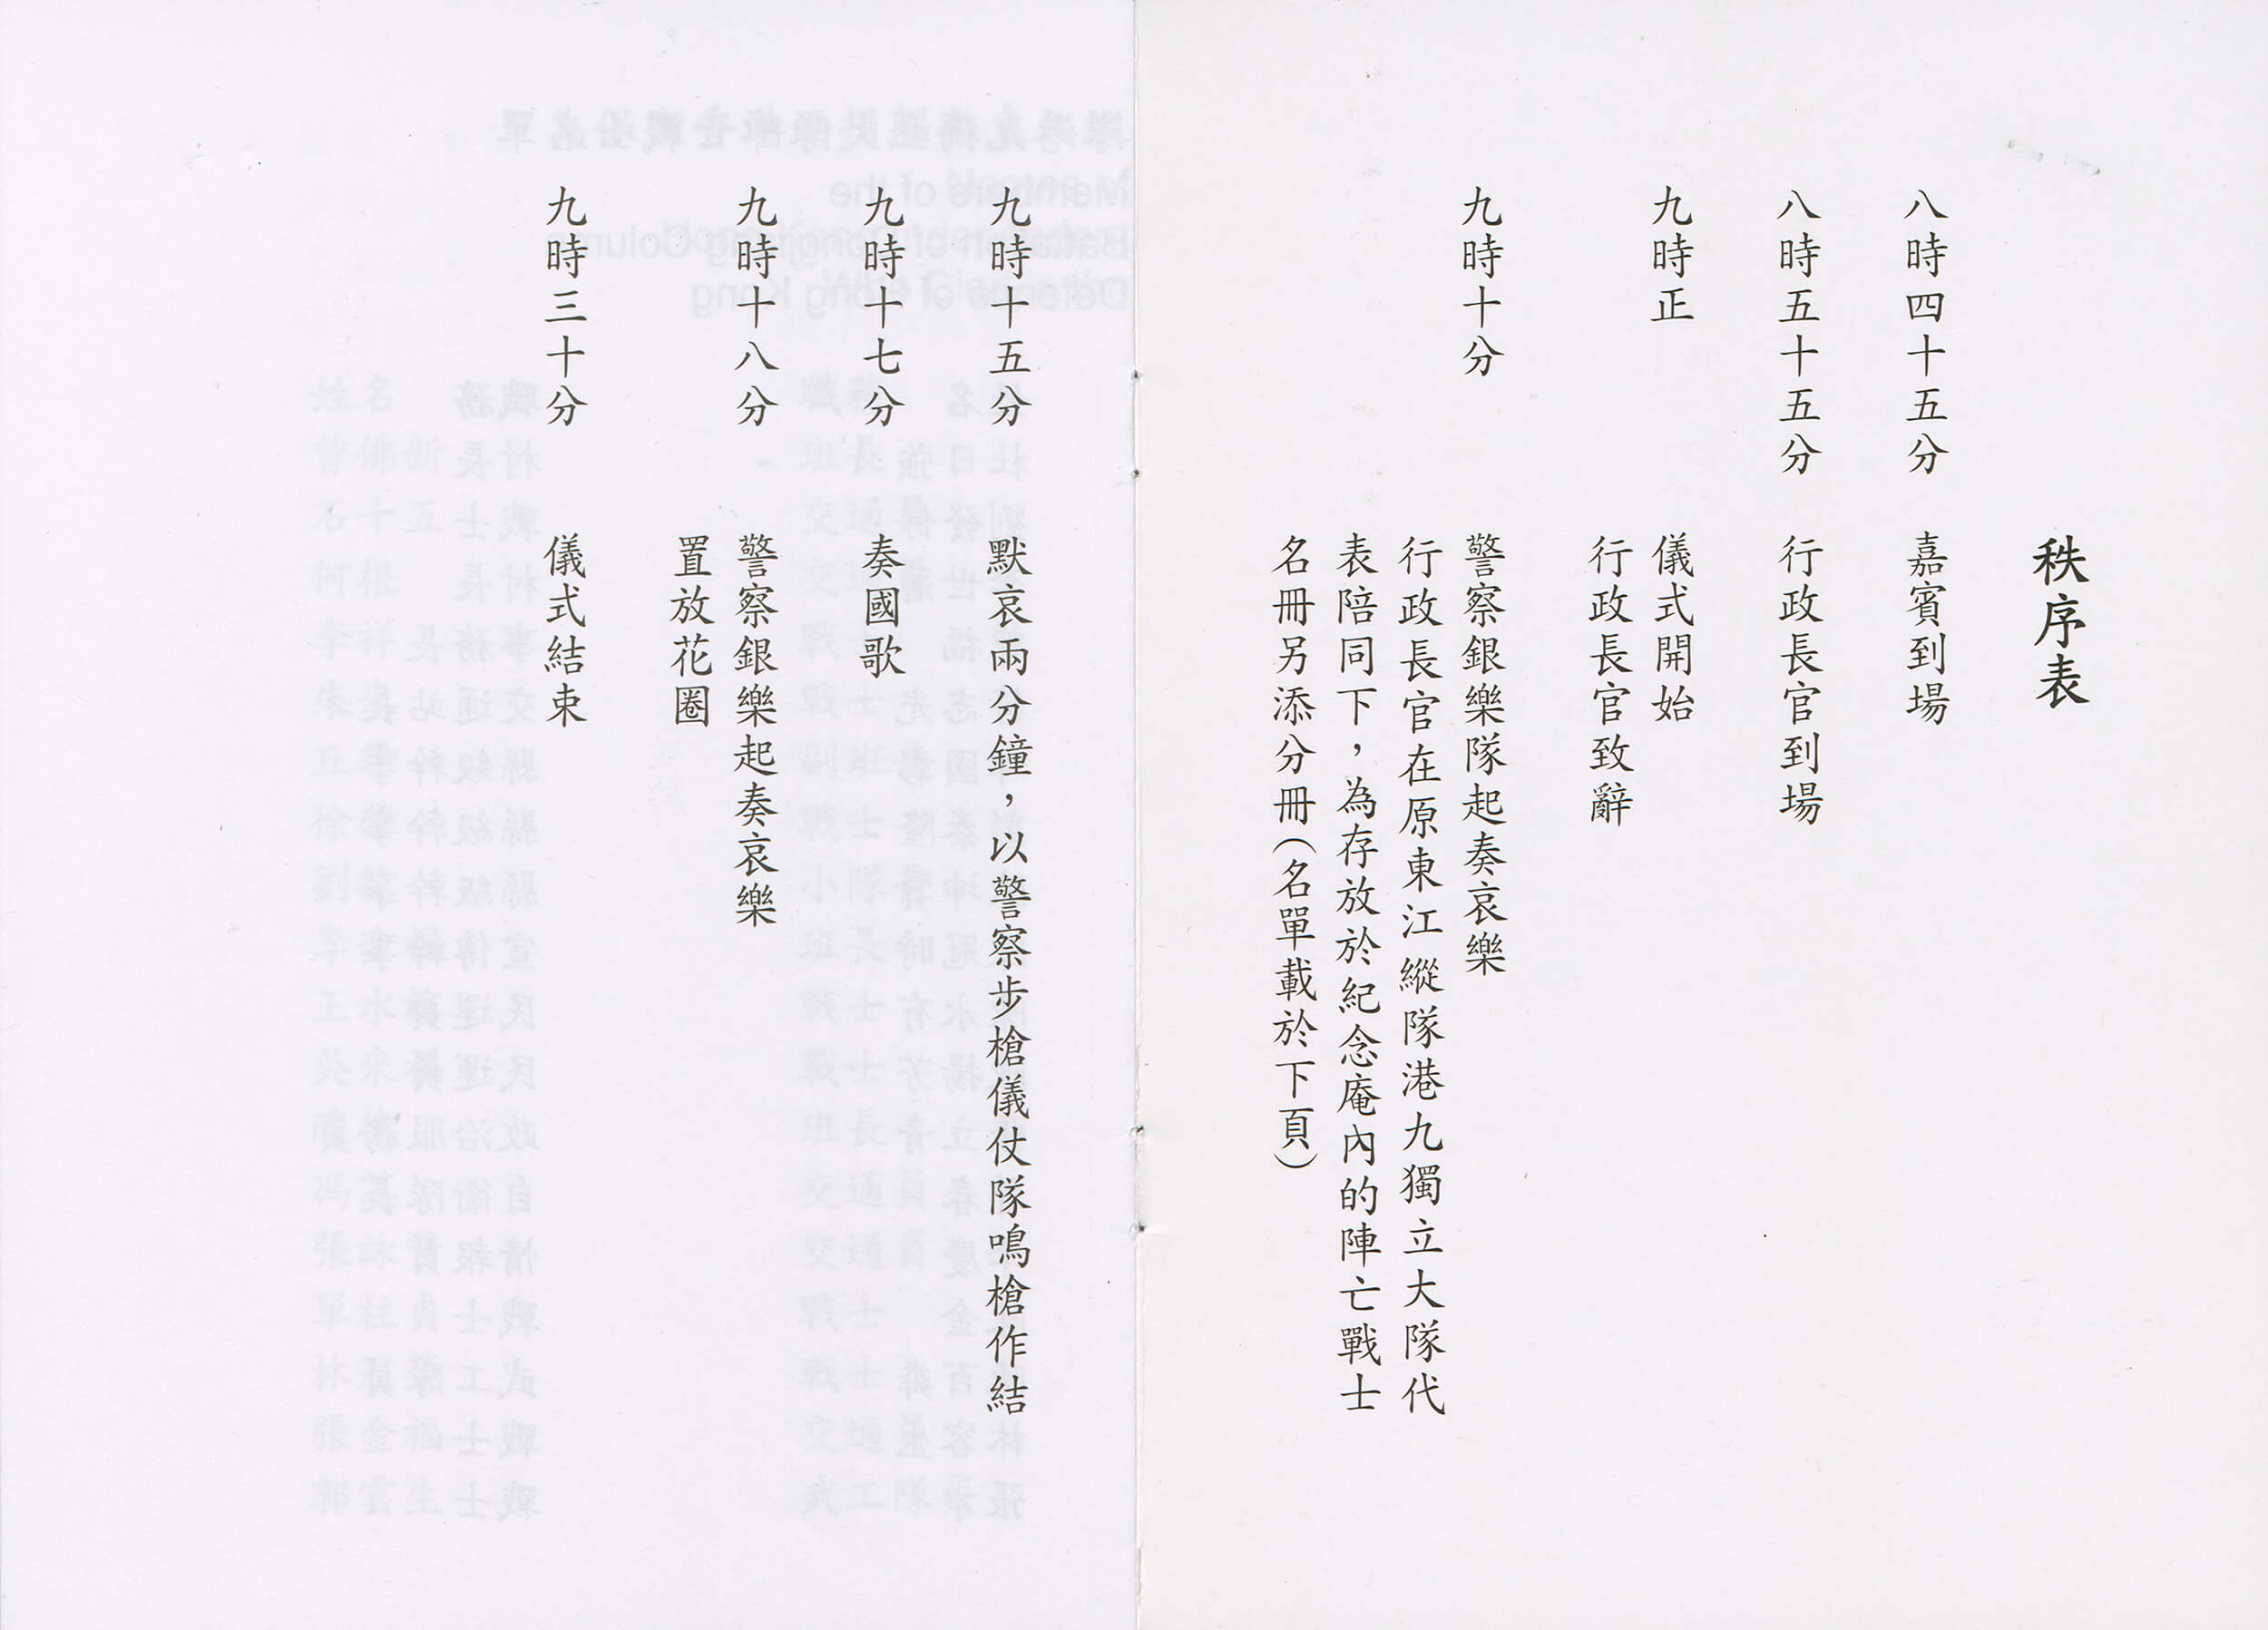 秩序表
八時四十五分 嘉賓到場
八時五十五分 行政長官到場
九時正 儀式開始
行政長官致辭
九時十分 警察銀樂隊起奏哀樂
行政長官在原東江縱隊港九獨立大隊代
表陪同下，為存放於紀念庵內的陣亡戰士
名冊另添分冊（名單載於下頁）
九時十五分 默哀兩分鐘，以警察步槍儀仗隊鳴槍作結
九時十七分 奏國歌
九時十八分 警察銀樂起奏哀樂
置放花圈
九時三十分 儀式結束